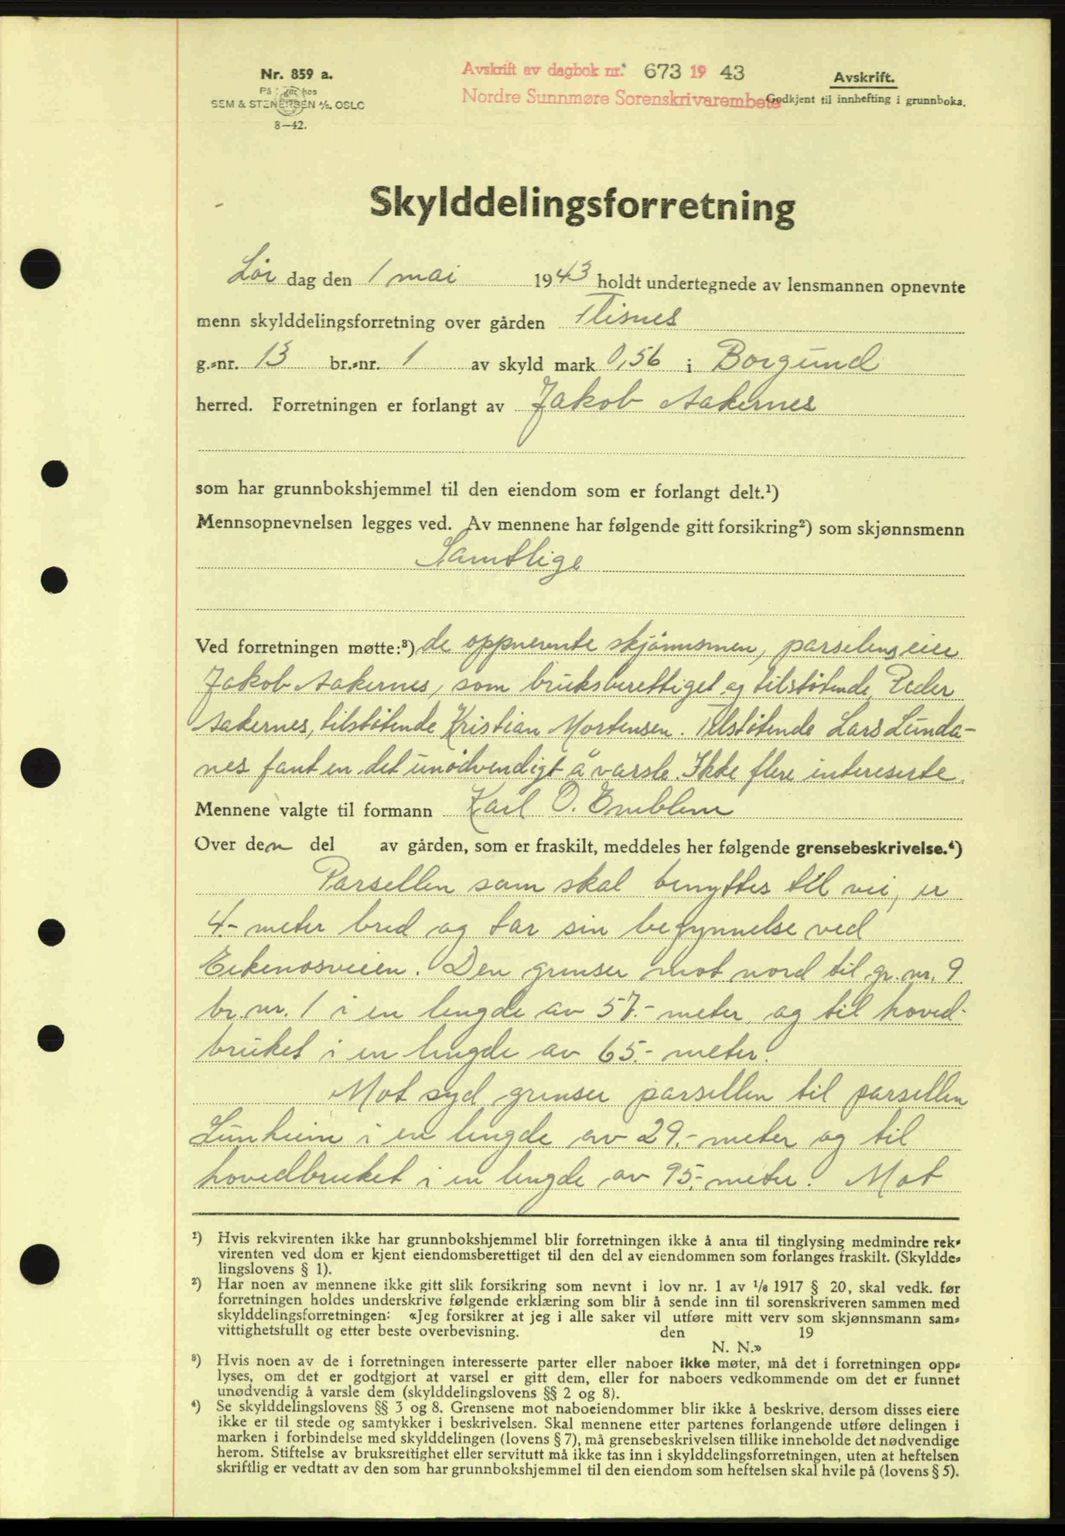 Nr. 859 a.
På lager hos
SEM & STENERSEN A/S. OSLO
8—42.
Avskrift av dagbok nr. 673 19 43
Nordre Sunnmøre Sorenskrivarembete
Avskrift.
Godkjent til innhefting i grunnboka.
Skylddelingsforretning
Lør dag den 1 mai 1943 holdt undertegnede av lensmannen opnevnte
menn skylddelingsforretning over gården Flisnes
g.-nr. 13 br.-nr. 1 av skyld mark 0,56 i Borgund
herred. Forretningen er forlangt av Jakob Aakernes
som har grunnbokshjemmel til den eiendom som er forlangt delt.¹)
Mennsopnevnelsen legges ved. Av mennene har følgende gitt forsikring²) som skjønnsmenn
Samtlige
Ved forretningen møtte:³) de oppnevnte skjønnsmen, parselens eier
Jakob Aakernes, som bruksberettiget og tilstøtende Peder
Aakernes, tilstøtende Kristian Mortensen. Tilstøtende Lars Lunda-
nes fant en det unødvendigt å varsle. Ikke flere intereserte.
Mennene valgte til formann Karl O. Emblem
Over den del av gården, som er fraskilt, meddeles her følgende grensebeskrivelse.⁴)
Parsellen som skal benyttes til vei, er
4.- meter bred og tar sin begynnelse ved
Eikenosveien. Den grenser mot nord til gr. nr. 9
br. nr. 1 i en lengde av 57.- meter og til hoved-
bruket i en lengde av 65.- meter.
Mot syd grenser parsellen til parsellen
Lunheim i en lengde av 29.- meter og til
hovedbruket i en lengde av 95.- meter. Mot
¹) Hvis rekvirenten ikke har grunnbokshjemmel blir forretningen ikke å anta til tinglysing medmindre rek-
virenten ved dom er kjent eiendomsberettiget til den del av eiendommen som forlanges fraskilt. (Skyldde-
lingslovens § 1).
²) Har noen av mennene ikke gitt slik forsikring som nevnt i lov nr. 1 av 1/6 1917 § 20, skal vedk. før
forretningen holdes underskrive følgende erklæring som blir å sende inn til sorenskriveren sammen med
skylddelingsforretningen: «Jeg forsikrer at jeg i alle saker vil utføre mitt verv som skjønnsmann sam-
vittighetsfullt og etter beste overbevisning. den 19
N. N.»
³) Hvis noen av de i forretningen interesserte parter eller naboer ikke møter, må det i forretningen opp-
lyses, om det er godtgjort at varsel er gitt dem, eller for naboers vedkommende om det er funnet
unødvendig å varsle dem (skylddelingslovens §§ 2 og 8).
⁴) Se skylddelingslovens §§ 3 og 8. Grensene mot naboeiendommer blir ikke å beskrive, dersom disses eiere
ikke er til stede og samtykker i beskrivelsen. Skal mennene etter partenes forlangende utføre delingen i
marken i forbindelse med skylddelingen (lovens § 7), må grensebeskrivelsen tillike inneholde det nødvendige
herom. Stiftelse av bruksrettighet eller servitutt må ikke tas inn i skylddelingsforretningen, uten at heftelsen
skriftlig er vedtatt av den som har grunnbokshjemmel til den eiendom som heftelsen skal hvile på (lovens § 5).